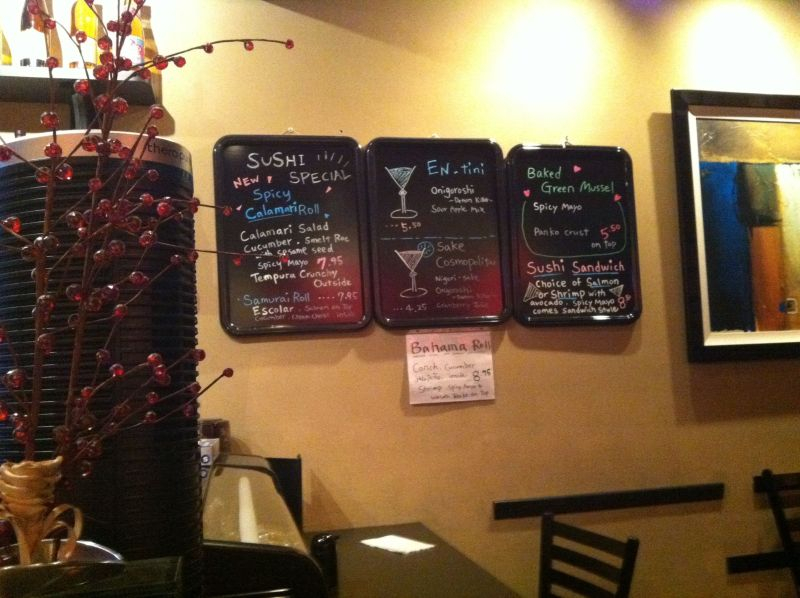 therop
SUSHI
SPECIAL
NEW
Spicy
Calamari Roll
Calamari Salad
Cucumber. Smelt Roe
with sesame seed
Spicy Mayo 7.95
Tempura Crunchy
Outside
Samurai Roll .... 7.95
Escolar.
Cucumber. Cream Cheese
EN-tini
Onigoroshi
Sour Apple Mix
... 5.50
Sake
Cosmopolitan
Nigori-sake
Onigoroshi
Cranberry Juice
... 4.25
Baked
Green Mussel
Spicy Mayo
Panko crust 5.50
on top
Sushi Sandwich
choice of Salmon
or Shrimp with
avocado. spicy Mayo
comes sandwich style
Bahama Roll
Conch. Cucumber
Jalapeño inside 8.95
Shrimp Spicy Mayo &
on Top